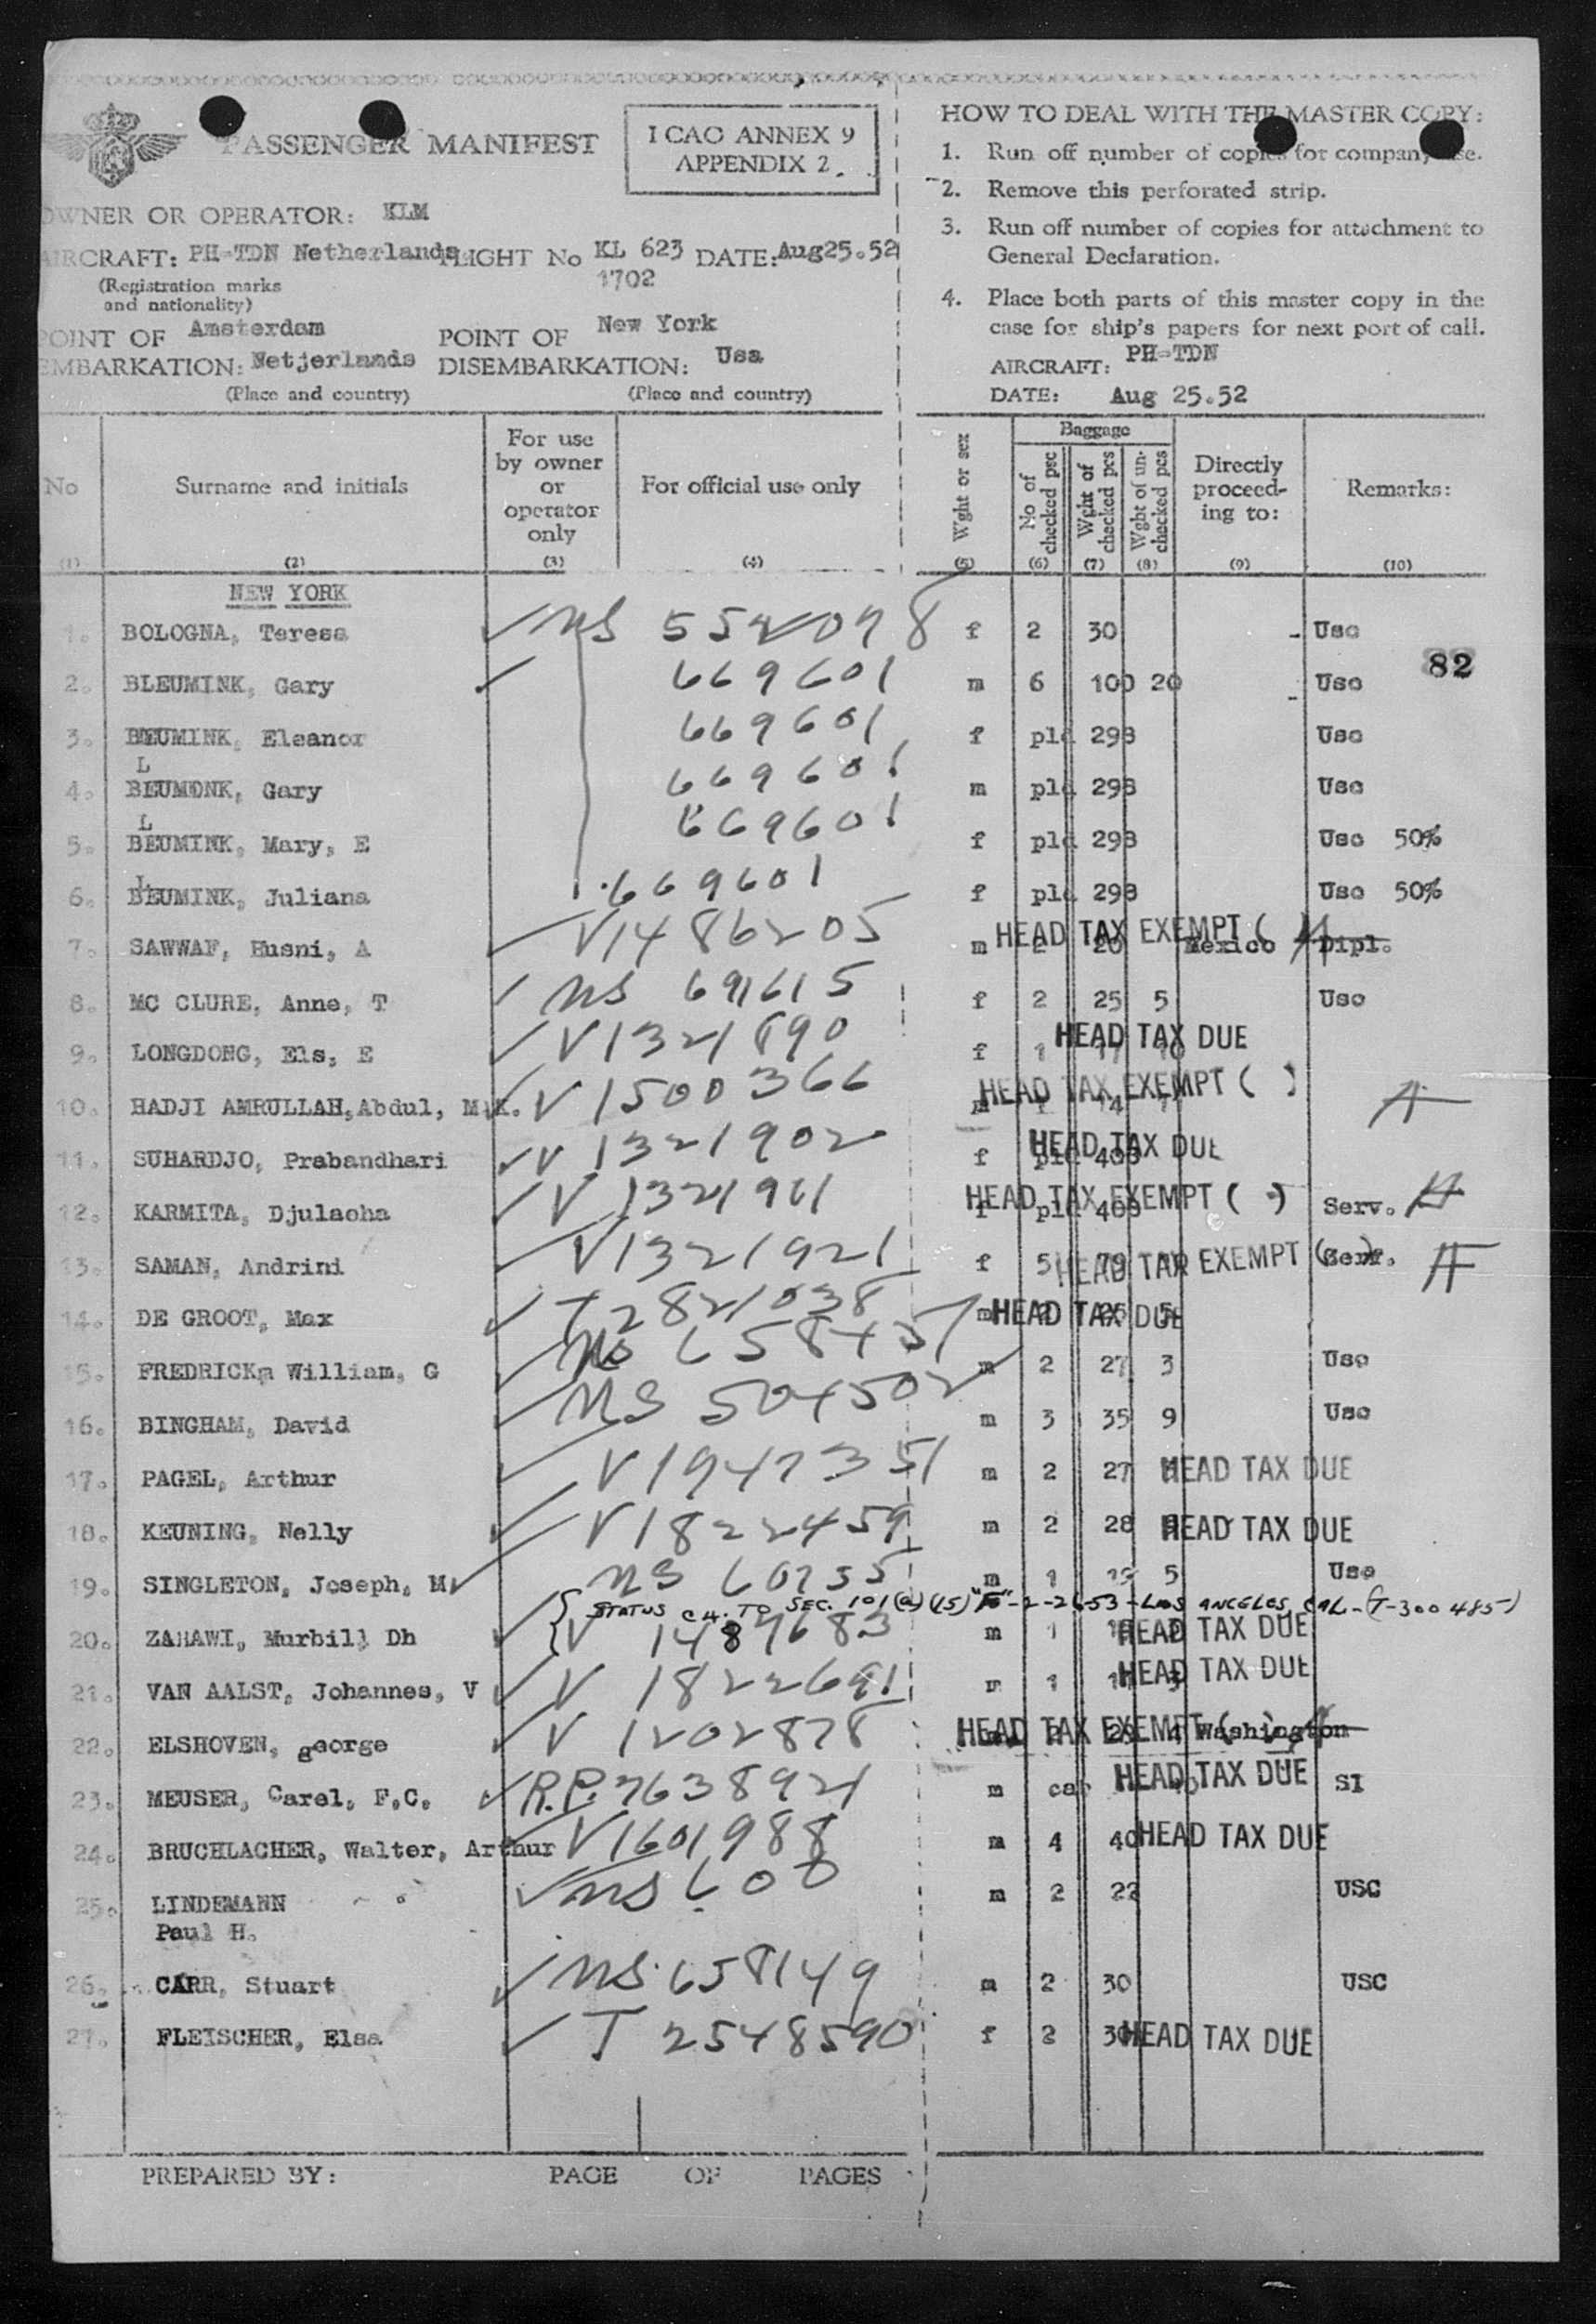 PASSENGER MANIFEST
I CAO ANNEX 9
APPENDIX 2
OWNER OR OPERATOR: KLM
AIRCRAFT: PH-TDN Netherlands FLIGHT No KL 623 DATE: Aug25.52
1702
(Registration marks
and nationality)
POINT OF Amsterdam POINT OF New York
EMBARKATION: Netjerlands DISEMBARKATION: Usa
(Place and country) (Place and country)
HOW TO DEAL WITH THE MASTER COPY:
1. Run off number of copies for company use.
2. Remove this perforated strip.
3. Run off number of copies for attachment to
General Declaration.
4. Place both parts of this master copy in the
case for ship's papers for next port of call.
AIRCRAFT: PH-TDN
DATE: Aug 25.52
No Surname and initials For use by owner or operator only For official use only Wght or sex Baggage No of checked psc Wght of checked pcs Wght of un-checked pcs Directly proceed-ing to: Remarks:
(1) (2) (3) (4) (5) (6) (7) (8) (9) (10)
NEW YORK
1. BOLOGNA, Teresa NS 5520478 f 2 30 Usc
82
2. BLEUMINK, Gary 669601 m 6 100 20 Usc
3. BEUMINK, Eleanor 669601 f pld 298 Usc
L
4. BEUMONK, Gary 669601 m pld 298 Usc
L
5. BEUMINK, Mary, E 669601 f pld 298 Usc 50%
L
6. BEUMINK, Juliana 669601 f pld 298 Usc 50%
7. SAWWAF, Husni, A V1486205 m 2 20 HEAD TAX EXEMPT ( ) Mexico Dipl.
8. MC CLURE, Anne, T NS 691615 f 2 25 5 Usc
9. LONGDONG, Els, E V1321890 f 1 17 10 HEAD TAX DUE
10. HADJI AMRULLAH, Abdul, M.K. V1500366 HEAD TAX EXEMPT ( ) A
11. SUHARDJO, Prabandhari V1321902 f pld 409 HEAD TAX DUE
12. KARMITA, Djulaoha V1321961 f pld 409 HEAD TAX EXEMPT ( ) Serv. A
13. SAMAN, Andrini V1321921 f 5 79 HEAD TAX EXEMPT ( ) Serv. A
14. DE GROOT, Max T2821038 m 2 25 5 HEAD TAX DUE
15. FREDRICK, William, G NS 658457 m 2 27 3 Usc
16. BINGHAM, David NS 504502 m 3 35 9 Usc
17. PAGEL, Arthur V1947351 m 2 27 HEAD TAX DUE
18. KEUNING, Nelly V1822459 m 2 28 HEAD TAX DUE
19. SINGLETON, Joseph, M NS 60755 m 1 5 Usc
STATUS CH. TO SEC. 101(a)(15)"F"-2-26-53-LOS ANGELES, CAL-(T-300485)
20. ZAHAWI, Murbill Dh V 1487683 m 1 HEAD TAX DUE
21. VAN AALST, Johannes, V V 1822691 m 1 HEAD TAX DUE
22. ELSHOVEN, george V 1202878 HEAD TAX EXEMPT ( ) Washington
23. MEUSER, Carel, F.C. R.P. 7638921 m HEAD TAX DUE SI
24. BRUCHLACHER, Walter, Arthur V1601988 m 4 40 HEAD TAX DUE
25. LINDEMANN NS 600 m 2 22 USC
Paul H.
26. CARR, Stuart NS 658149 m 2 30 USC
27. FLEISCHER, Elsa T 2548590 f 2 30 HEAD TAX DUE
PREPARED BY: PAGE OF PAGES